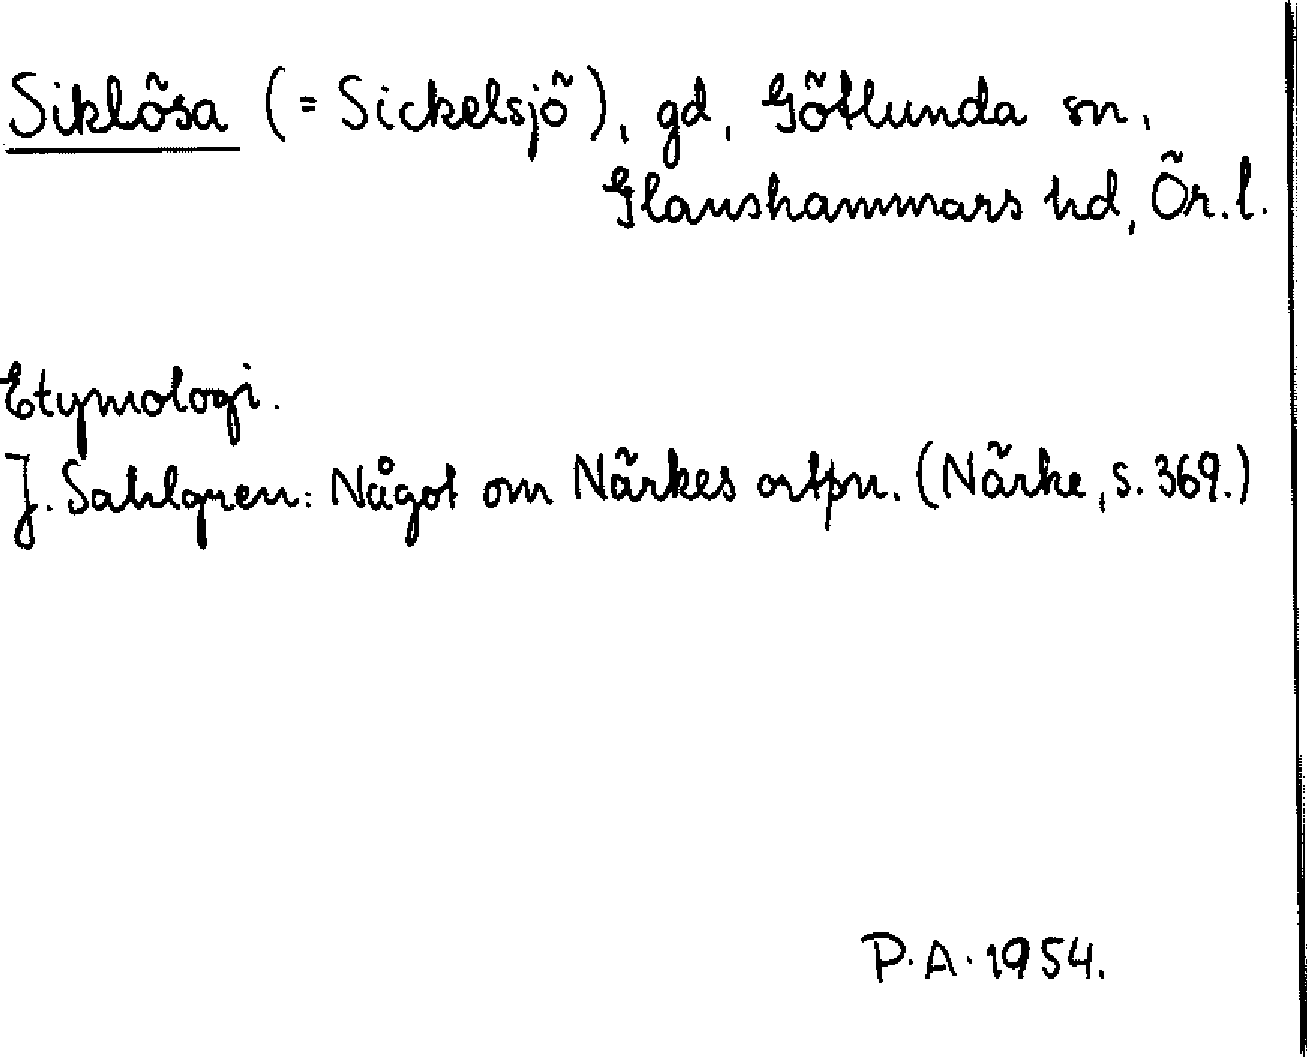 Siklösa (= Sickelsjö), gd, Götlunda sn,
Glanshammars hd, Ör. l.
Etymologi.
J. Sahlgren: Något om Närkes ortpn. (Närke, s. 369.)
P.A. 1954.